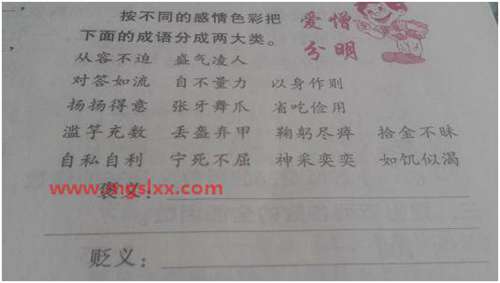 按不同的感情色彩把
下面的成语分成两大类。
爱憎
分明
从容不迫 盛气凌人
对答如流 自不量力 以身作则
扬扬得意 张牙舞爪 省吃俭用
滥竽充数 丢盔弃甲 鞠躬尽瘁 拾金不昧
自私自利 宁死不屈 神采奕奕 如饥似渴
www.mgslxx.com
褒义：
贬义：